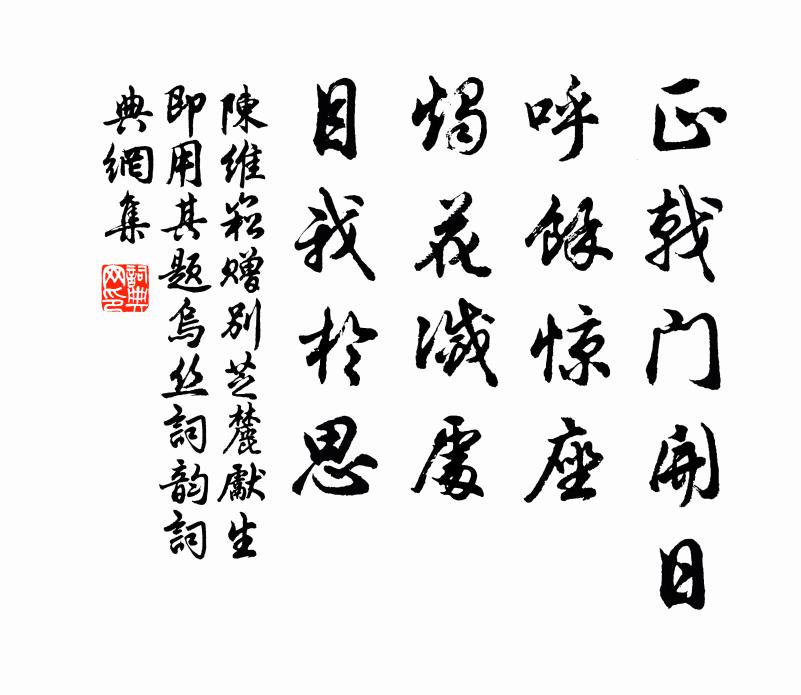 正戟门開日
呼餘惊座
燭花滅處
目我於思
陳維崧赠别芝麓獻生
即用其题烏丝詞韵詞
典網集
詞典
网印